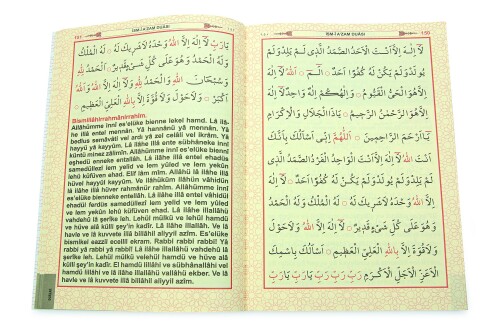 İSM-İ A'ZAM DUÂSI
150
لَا اِلٰهَ اِلَّا اَنْتَ الْاَحَدُ الصَّمَدُ الَّذِى لَمْ يَلِدْ وَلَمْ
يُولَدْ وَلَمْ يَكُنْ لَهُ كُفُوًا اَحَدٌ ۞ الٓمٓ ۞ اَللّٰهُ لَا اِلٰهَ
اِلَّا هُوَ الْحَيُّ الْقَيُّومُ ۞ وَاِلٰهُكُمْ اِلٰهٌ وَاحِدٌ لَا اِلٰهَ
اِلَّا هُوَ الرَّحْمٰنُ الرَّحِيمُ ۞ يَا ذَا الْجَلَالِ وَالْاِكْرَامِ
يَا اَرْحَمَ الرَّاحِمِينَ ۞ اَللّٰهُمَّ اِنِّى اَسْاَلُكَ بِاَنَّكَ
اَنْتَ اللّٰهُ لَا اِلٰهَ اِلَّا اَنْتَ الْوَاحِدُ الْفَرْدُ الصَّمَدُ الَّذِى
لَمْ يَلِدْ وَلَمْ يُولَدْ وَلَمْ يَكُنْ لَهُ كُفُوًا اَحَدٌ ۞ لَا اِلٰهَ
اِلَّا اللّٰهُ وَحْدَهُ لَا شَرِيكَ لَهُ ۞ لَهُ الْمُلْكُ وَلَهُ الْحَمْدُ
وَهُوَ عَلٰى كُلِّ شَىْءٍ قَدِيرٌ ۞ لَا اِلٰهَ اِلَّا اللّٰهُ وَلَا حَوْلَ
وَلَا قُوَّةَ اِلَّا بِاللّٰهِ الْعَلِىِّ الْعَظِيمِ ۞ اَسْاَلُكَ بِاسْمِكَ
الْاَعَزِّ الْاَجَلِّ الْاَكْرَمِ رَبِّ رَبِّ رَبِّ يَارَبِّ يَارَبِّ
151
İSM-İ A'ZAM DUÂSI
يَارَبِّ لَا اِلٰهَ اِلَّا اللّٰهُ وَحْدَهُ لَا شَرِيكَ لَهُ ۞ لَهُ الْمُلْكُ
وَلَهُ الْحَمْدُ وَهُوَ عَلٰى كُلِّ شَىْءٍ قَدِيرٌ ۞ اَلْحَمْدُ لِلّٰهِ
وَسُبْحَانَ اللّٰهِ وَالْحَمْدُ لِلّٰهِ وَلَا اِلٰهَ اِلَّا اللّٰهُ وَاللّٰهُ
اَكْبَرُ ۞ وَلَا حَوْلَ وَلَا قُوَّةَ اِلَّا بِاللّٰهِ الْعَلِىِّ الْعَظِيمِ
Bismillâhirrahmânirrahîm.
Allâhümme innî es'elüke bienne lekel hamd. Lâ ilâ-
he illâ entel mennân. Yâ hannânü yâ mennân. Yâ
bedîus semâvâti vel ardı yâ zel celâli vel ikrâm. Yâ
hayyü yâ kayyûm. Lâ ilâhe illâ ente sübhâneke innî
küntü minez zâlimîn. Allâhümme innî es'elüke biennî
eşhedü enneke entallah. Lâ ilâhe illâ entel ehadüs
samedüllezî lem yelid ve lem yûled ve lem yekün
lehû küfüven ehad. Elif lâm mîm. Allâhü lâ ilâhe illâ
hüvel hayyül kayyûm. Ve ilâhüküm ilâhün vâhidün
lâ ilâhe illâ hüver rahmânür rahîm. Allâhümme innî
es'elüke bienneke entellah. Lâ ilâhe illâ entel vâhidül
ehadül ferdüs samedüllezî lem yelid ve lem yûled ve
lem yekün lehû küfüven ehad. Lâ ilâhe illallâhü
vahdehû lâ şerîke leh. Lehül mülkü ve lehül hamdü
ve hüve alâ külli şey'in kadîr. Lâ ilâhe illallâhü ve lâ
havle ve lâ kuvvete illâ billâhil aliyyil azîm. Es'elüke
bismikel eazzil ecellil ekram. Rabbi rabbi rabbî! Yâ
rabbi yâ rabbi yâ rabbî! Lâ ilâhe illallâhü vahdehû lâ
şerîke leh. Lehül mülkü velehül hamdü ve hüve alâ
külli şey'in kadîr. El hamdü lillâhi ve sübhânallâhi vel
hamdü lillâhi ve lâ ilâhe illallâhü vallâhü ekber. Ve lâ
havle ve lâ kuvvete illâ billâhil aliyyil azîm.